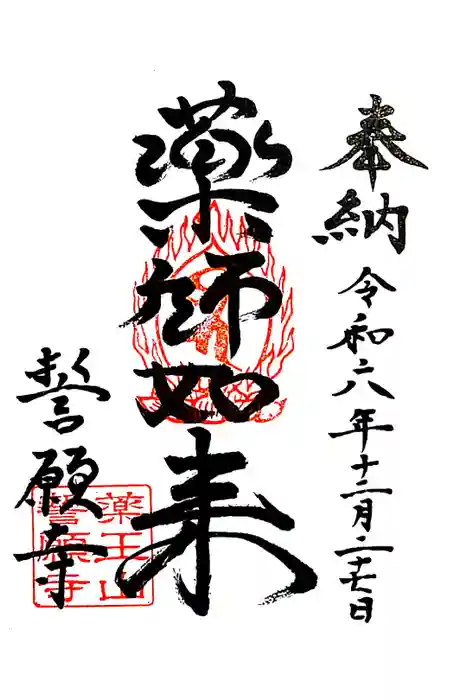 奉納 令和六年十二月二十七日
薬師如来
誓願寺
薬王山
誓願寺